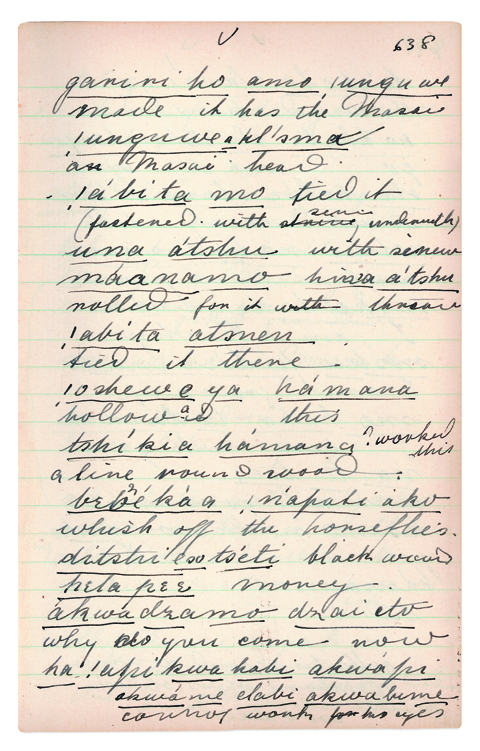 638
ganini ho amo !unguwe
made it has the Masai
!unguwe a kl'sma
an Masai head.
!ábíta mo tied it
(fastened. with sinew underneath)
una átshu with sinew
máanamo hisa átshu
rolled for it with thread
!abíta atsnen
tied it there.
!oshewe ya hámana
hollowed this
tshíkia hámana ? worked this
a line round wood.
bebéká a !nápati áko
whish off the horseflies.
ditstri eso tséti black wood
heta pee money.
akwa dzamo dzai eto
why do you come now
ha !api kwa habi akwápi
akwáme elabi akwabeme
cannot work for his eyes